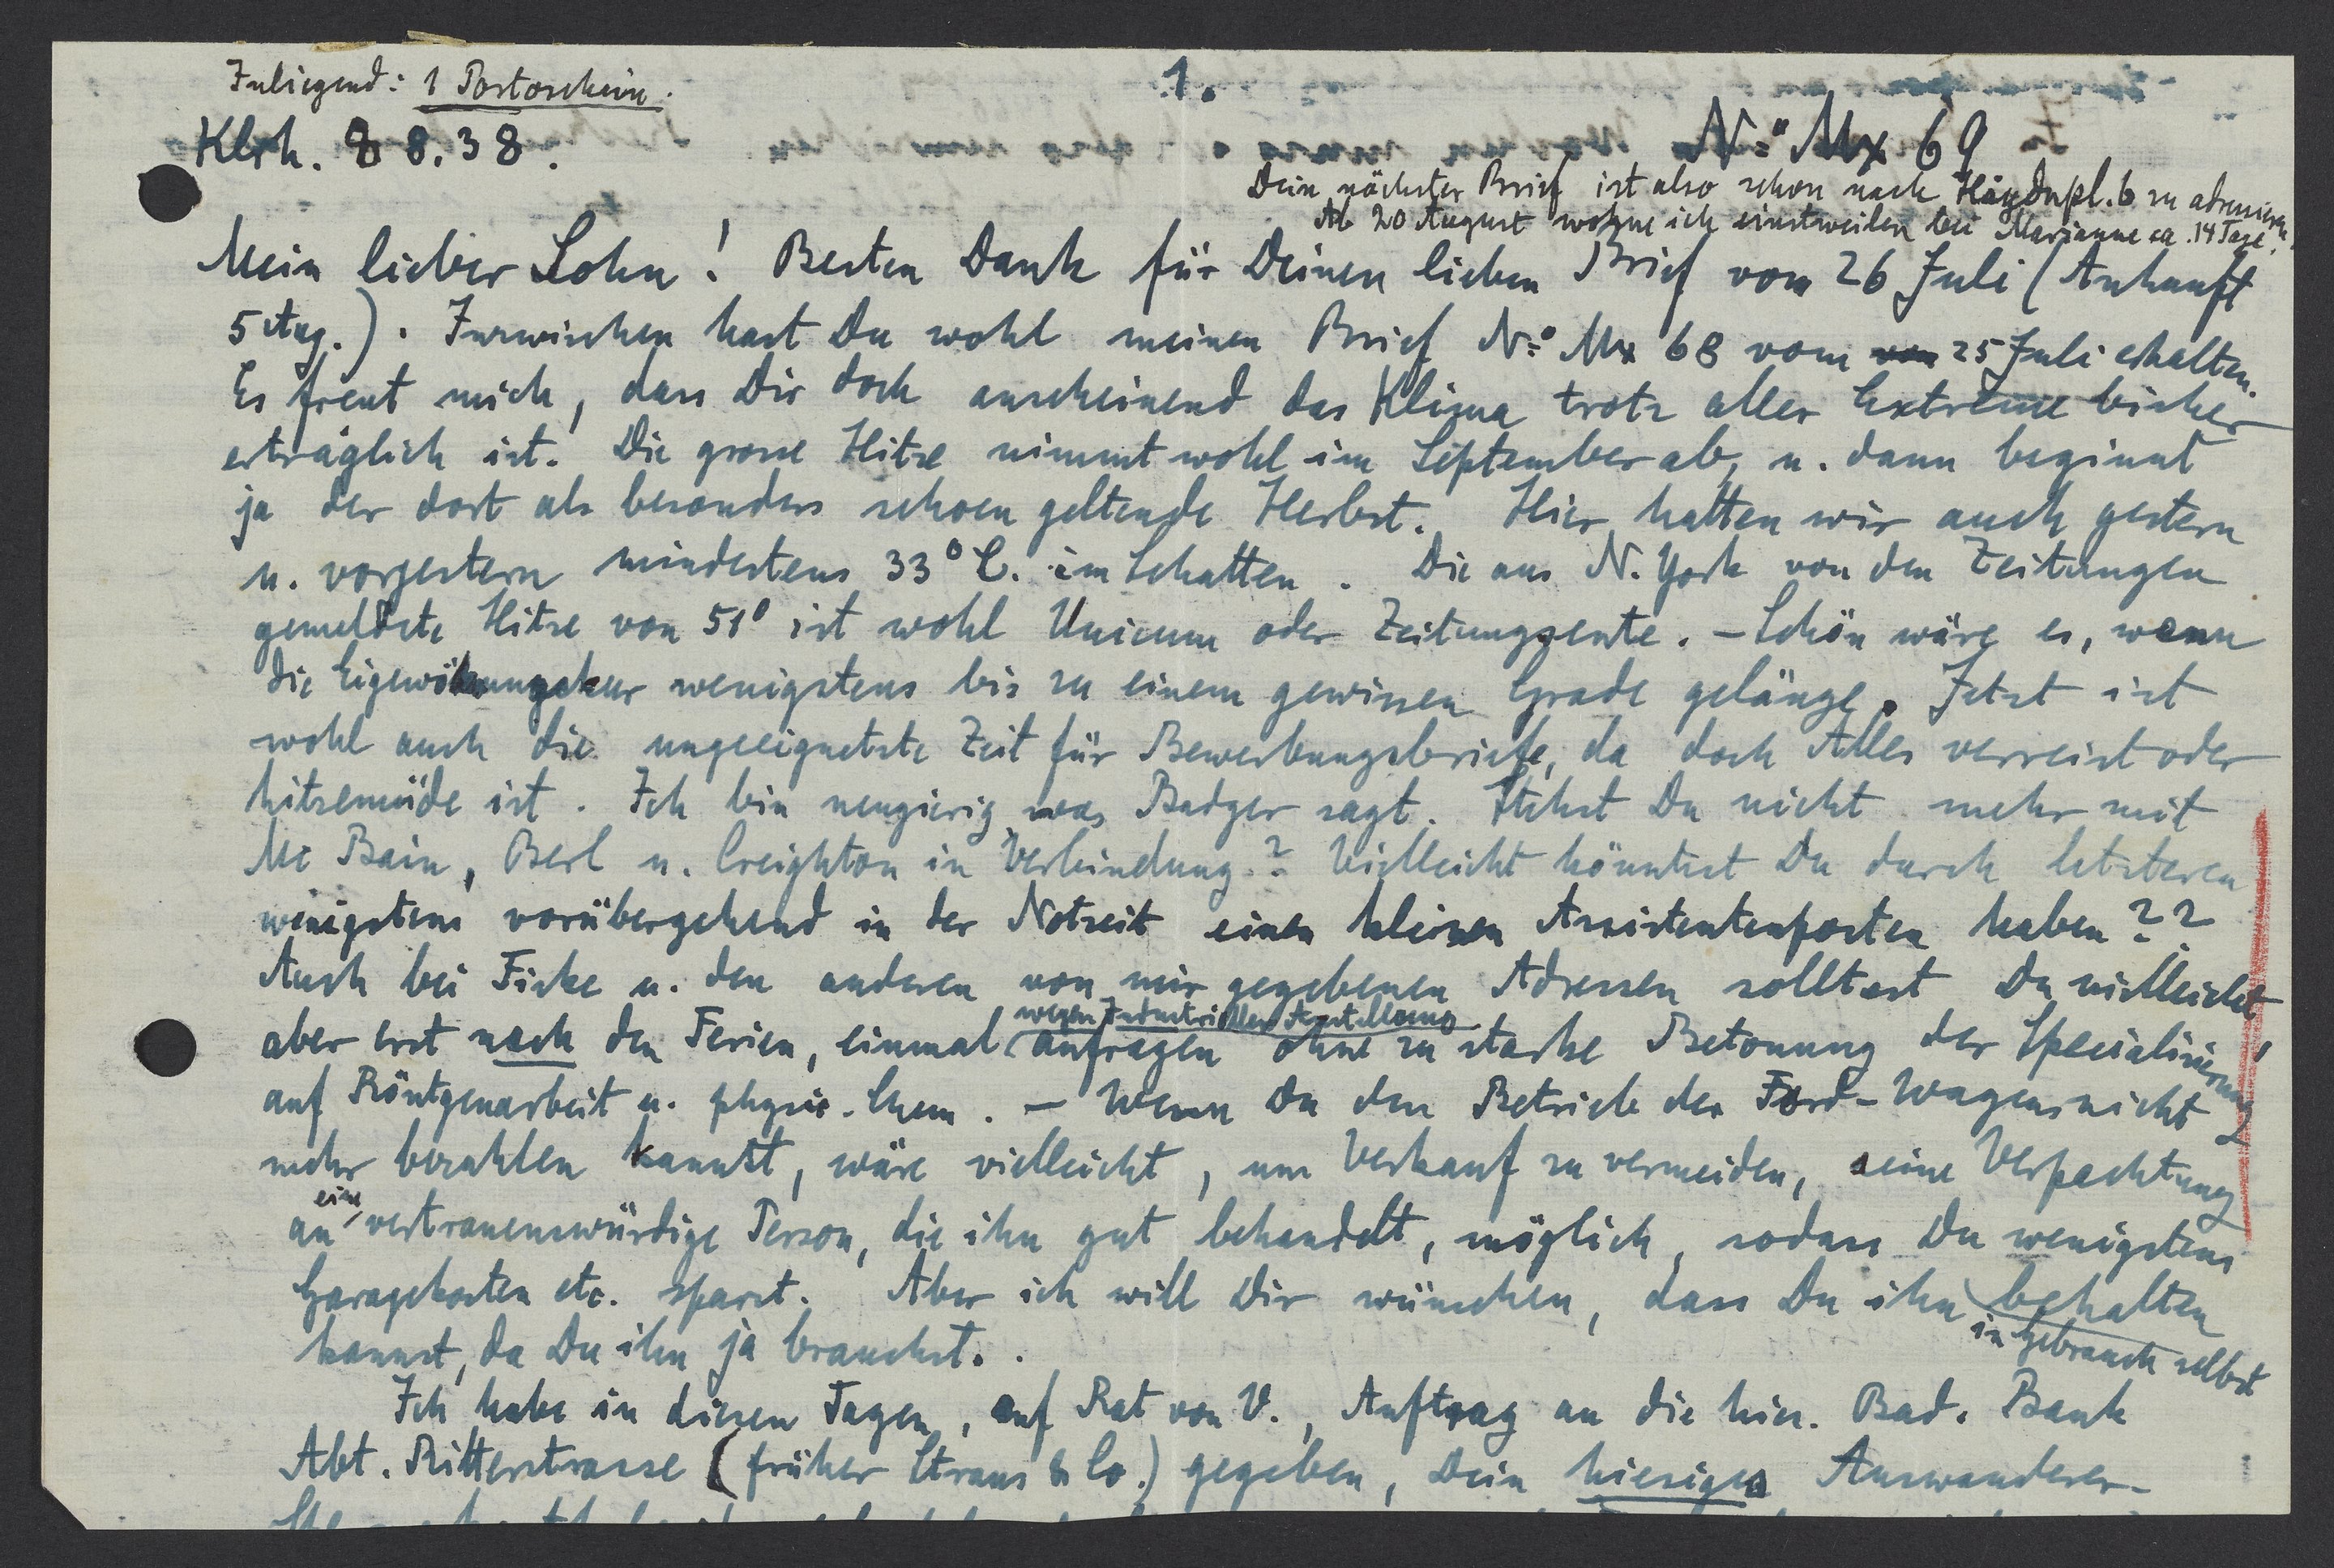 Inliegend: 1 Portoschein.
1.
Klrh. 8 8.38.
No Mx 69
Dein nächster Brief ist also schon nach Haydnpl. 6 zu adressieren.
Ab 20 August wohne ich einstweilen bei Marianne ca. 14 Tage.
Mein lieber Sohn! Besten Dank für Deinen lieben Brief vom 26 Juli (Ankunft
5 Aug.). Inzwischen hast Du wohl meinen Brief No Mx 68 vom von 25 Juli erhalten.
Es freut mich, dass Dir doch anscheinend das Klima trotz aller Extreme bisher
erträglich ist. Die grosse Hitze nimmt wohl im September ab, u. dann beginnt
ja der dort als besonders schoen geltende Herbst. Hier hatten wir auch gestern
u. vorgestern mindestens 33° C. im Schatten. Die aus N. York von den Zeitungen
gemeldete Hitze von 51° ist wohl Unicum oder Zeitungsente. – Schön wäre es, wenn
die Eigewöhnungskur wenigstens bis zu einem gewissen Grade gelänge. Jetzt ist
wohl auch die ungeeignetste Zeit für Bewerbungsbriefe, da doch Alles verreist oder
hitzemüde ist. Ich bin neugierig, was Badger sagt. Stehst Du nicht mehr mit
Mc Bain, Berl u. Creighton in Verbindung? Vielleicht könntest Du durch letzteren
wenigstens vorübergehend in der Notzeit einen kleinen Assistentenposten haben??
Auch bei Ficke u. den anderen von mir gegebenen Adressen solltest Du vielleicht,
wegen Industrieller Anstellung
aber erst nach den Ferien, einmal anfragen ohne zu starke Betonung der Specialisierung
auf Röntgenarbeit u. physic. Chem. – Wenn Du den Betrieb des Ford-Wagens nicht
mehr bezahlen kannst, wäre vielleicht, um Verkauf zu vermeiden, seine Verpachtung
eine
an vertrauenswürdige Person, die ihn gut behandelt, möglich, sodass Du wenigstens
Garagekosten etc. sparst. Aber ich will Dir wünschen, dass Du ihn behalten
in Gebrauch selbst
kannst, da Du ihn ja brauchst.
Ich habe in diesen Tagen, auf Rat von V., Auftrag an die hies. Bad. Bank
Abt. Ritterstrasse (früher Straus & Co.) gegeben, Dein hiesiges Auswanderer-